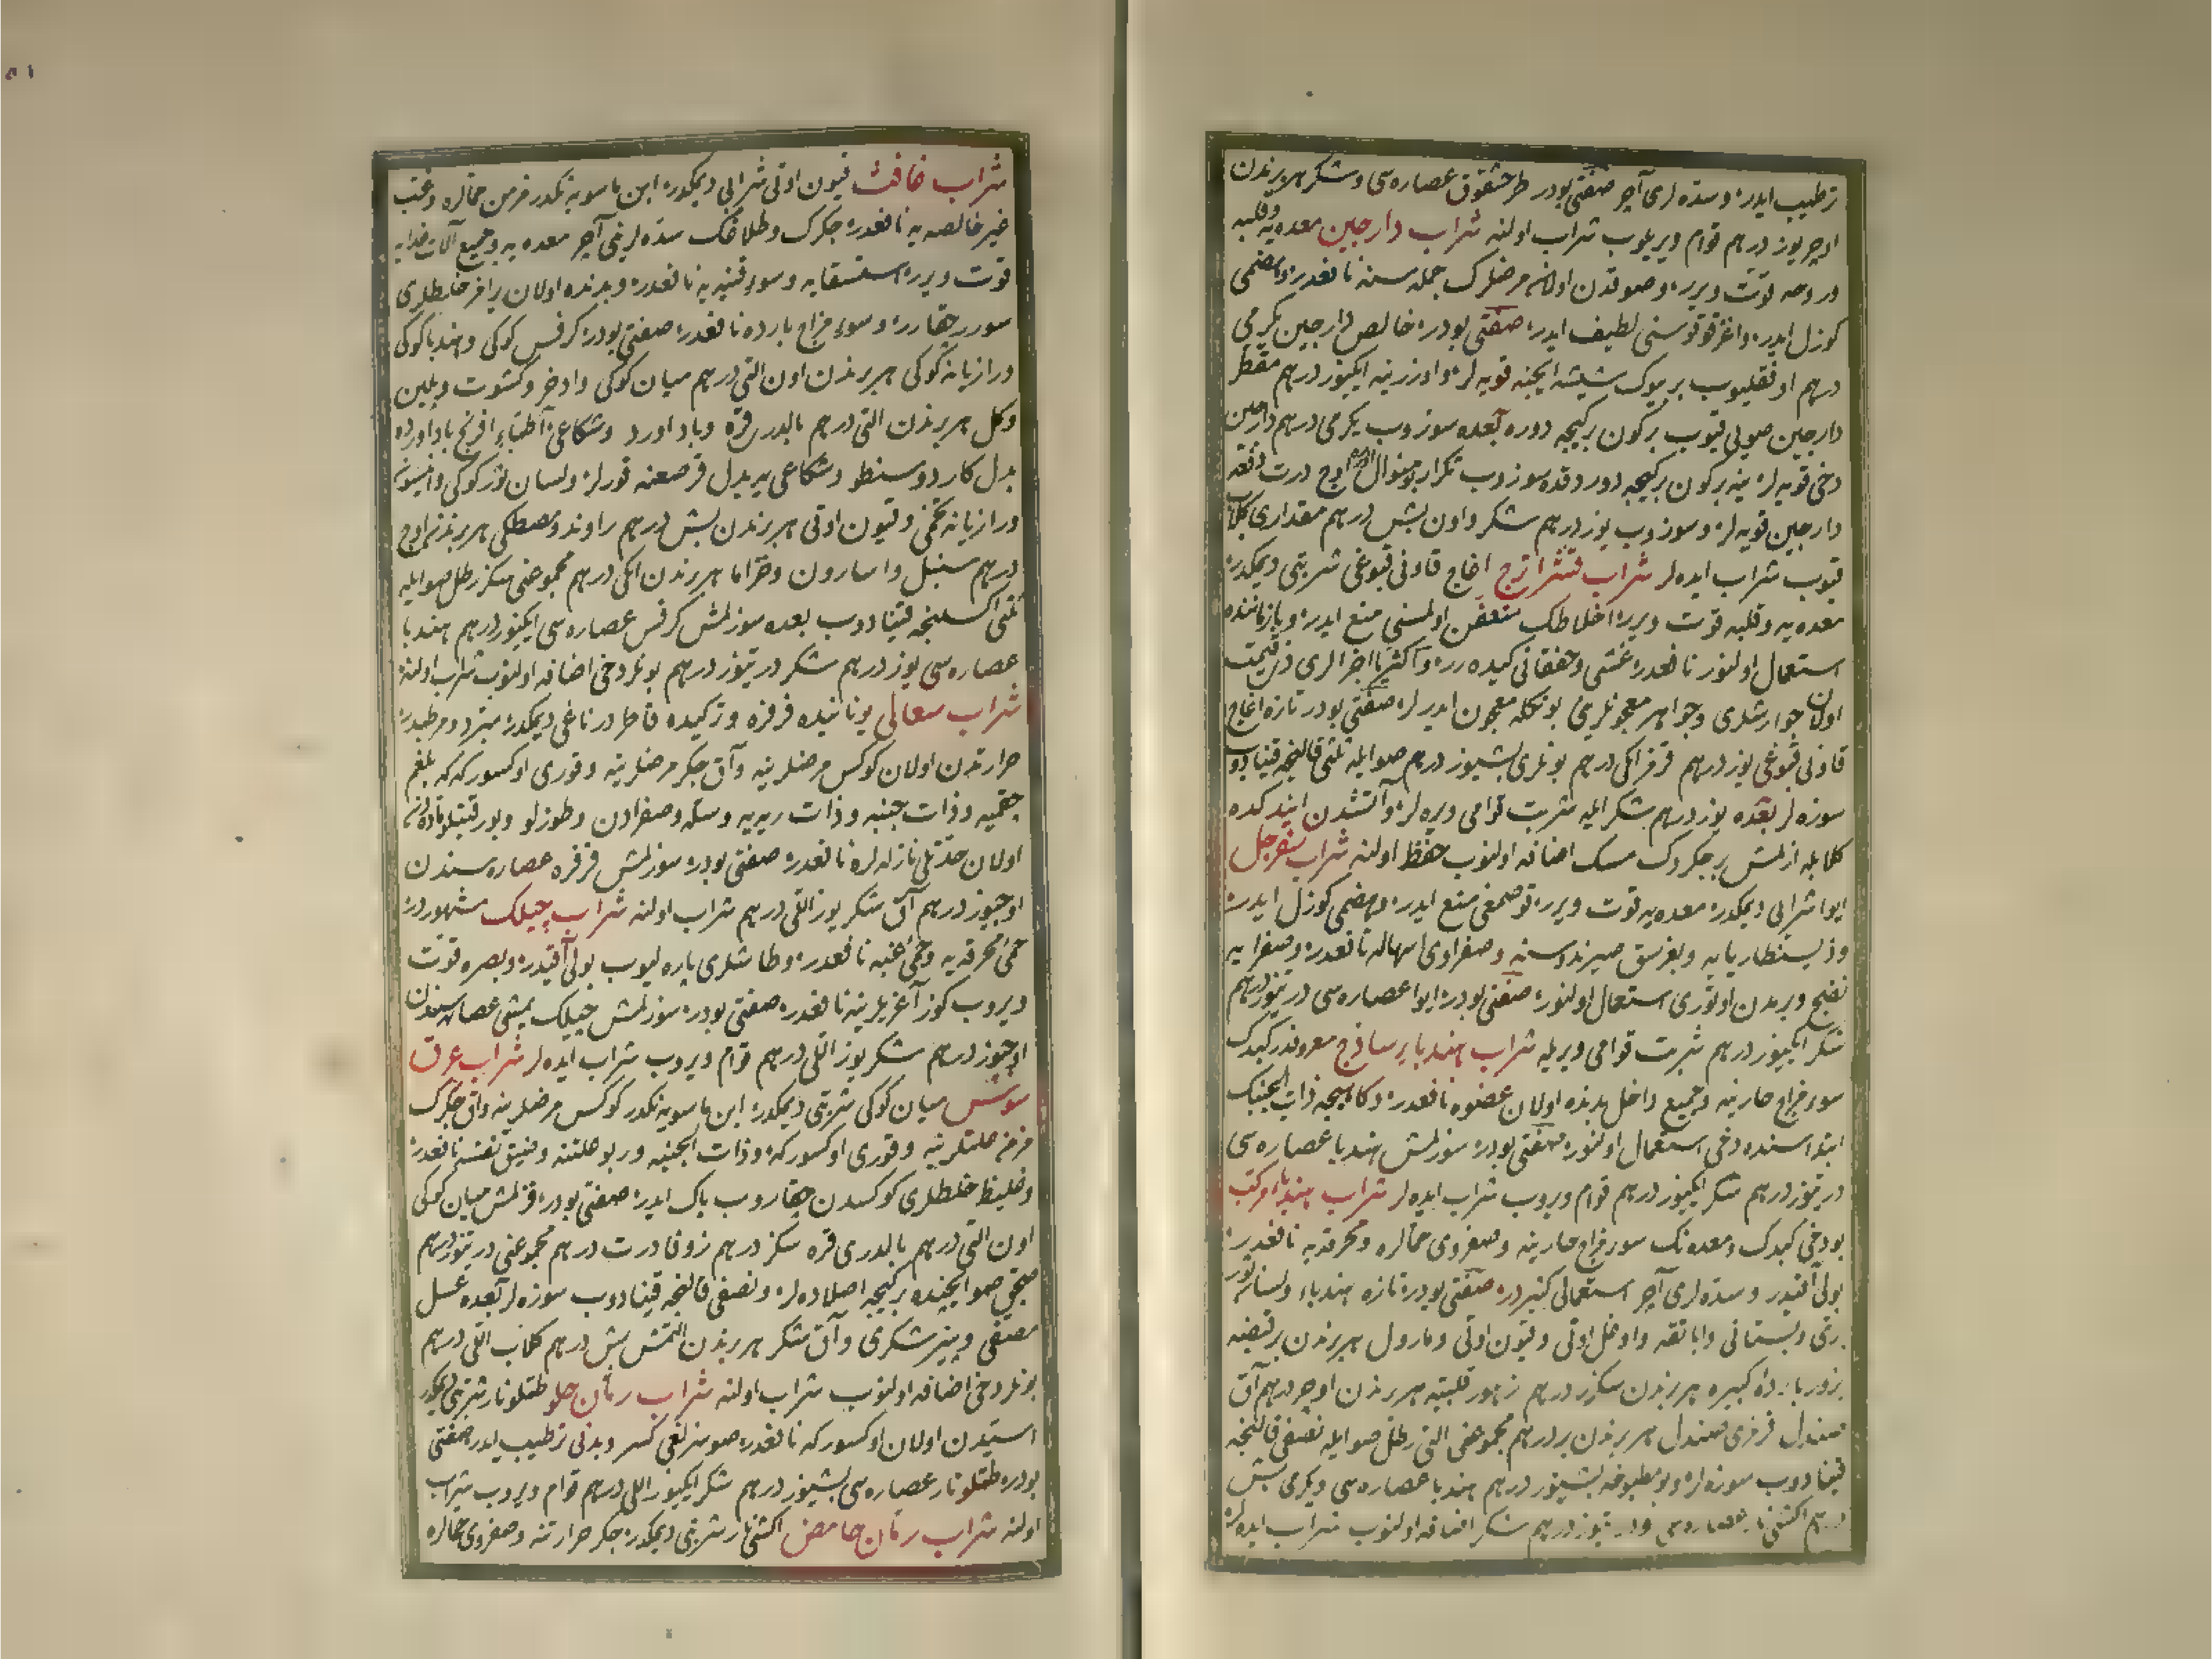 ترطیب ایدر و سده لری آچر صفتی بودر طرخشقوق عصاره سی و شکر هر برندن
اوچر یوز درهم قوام ویریلوب شراب اولنه شراب دارجین معده یه و قلبه
و روحه قوت ویرر و صوقدن اولان مرضلرک جمله سنه نافعدر و هضمی
کوزل ایدر و اغز قوقوسنی لطیف ایدر صفتی بودر خالص دارجین یکرمی
درهم اوفقلیوب بر بیوک شیشه ایچنه قویه لر و اوزرینه ایکیوز درهم مقطر
دارجین صویی قیوب بر کون بر کیجه دوره بعده سوزوب یکرمی درهم دارجین
دخی قویه لر ینه بر کون بر کیجه دوردقده سوزوب تکرار بو منوال اوزره اوچ درت دفعه
دارجین قویه لر و سوزوب یوز درهم شکر و اون بش درهم مقداری کلاب
قیوب شراب ایده لر شراب قشر اترج اغاج قاونی قبوغی شربتی دیمکدر
معده یه و قلبه قوت ویرر اخلاطک متعفن اولمسنی منع ایدر و یاز کوننده
استعمال اولنور نافعدر غشی و خفقانی کیده رر و اکثریا اجزالری ذی قیمت
اولان جوارشلری و جواهر معجونلرینی بونکله معجون ایدرلر صفتی بودر تازه اغاج
قاونی قبوغی یوز درهم قرفز ایکی درهم بونلری بشیوز درهم صوایله ثلثی قالنجه قینادوب
سوزه لر بعده یوز درهم شکر ایله شربت قوامی ویره لر و آتشدن ایندکده
کلابله ازلمش بر چکردک مسک اضافه اولنوب حفظ اولنه شراب سفرجل
ایوا شرابی دیمکدر معده یه قوت ویرر قوصمغی منع ایدر و هضمی کوزل ایدر
وذیسنطاریایه و بغرسق صیرندوسنه و صفراوی اسهاله نافعدر و صفرایه
نضج ویرمدن اوتوری استعمال اولنور صفتی بودر ایوا عصاره سی درتیوز درهم
شکر ایکیوز درهم شربت قوامی ویریله شراب هندبا بر ساذج معروفدر کبدک
سوء مزاج حارینه و جمیع داخل بدنده اولان عضوه نافعدر ذات الجنبک
ابتداسنده دخی استعمال اولنور صفتی بودر سوزلمش هندبا عصاره سی
درتیوز درهم شکر ایکیوز درهم قوام ویروب شراب ایده لر شراب هندباء مرکب
بودخی کبدک و معده نک سوء مزاج حارینه و صفروی حمالره و محرقه یه نافعدر
بولی آقیدر و سده لری آچر استعمالی کثیردر صفتی بودر تازه هندباء و لسان ثور
بری و بستانی و اوغل اوتی و قیون اوتی و مارول هر برندن بر قبضه
بزور بارده کبیره هر برندن سکزر درهم زهور قلبیه هر برندن اوچر درهم آق
صندل قرمزی صندل هر برندن بر درهم مجموعنی التی رطل صوایله نصفی قالنجه
قینادوب سوزه لر و بو مطبوخه بشیوز درهم هندبا عصاره سی و یکرمی بش
درهم اکشی نار عصاره سی و درتیوز درهم شکر اضافه اولنوب شراب ایده لر
شراب غافث قیون اوتی شرابی دیمکدر ابن ماسویه ندکدر مزمن حمالره و غب
غیر خالصه یه نافعدر جکرک و طلاغک سده لرینی آچر معده یه و جمیع آلات غذایه
قوت ویرر استسقایه و سوء قنیه یه نافعدر و بدنده اولان یرامز خلطلری
سوررچقارر و سوء مزاج بارده نافعدر صفتی بودر کرفس کوکی و هندبا کوکی
و رازیانه کوکی هر برندن اون التی درهم میان کوکی و اذخر و کشوت و پلین
و کل هر برندن التی درهم بالدری قره و باداورد و شکاعی اطباء افرنج باداورده
بدل کاردوسنطو و شکاعی یه بدل قرصعنه قورلر و لسان ثور کوکی و انیسون
و رازیانه تخمی و قیون اوتی هر برندن بش درهم راوند و مصطکی هر برندن اوچ
درهم سنبل و اسارون و حماما هر برندن ایکی درهم مجموعنی سکز رطل صوایله
ثلثی اکسلنجه قینادوب بعده سوزلمش کرفس عصاره سی ایکیوز درهم هندبا
عصاره سی یوز درهم شکر درتیوز درهم بونلر دخی اضافه اولنوب شراب اولنه
شراب سعالی یوناننده فرفره و ترکیده قاطر درناغی دیمکدر مبرد و مرطبدر
حرارتدن اولان کوکس مرضلرینه و آق جکر مرضلرینه و قوری اوکسورکه که بلغم
چقمیه و ذات جنبه و ذات ریه یه و سله و صفرادن و طوزلو و بورقیتلو ماده لردن
اولان حدتلی نازله لره نافعدر صفتی بودر سوزلمش فرفره عصاره سندن
اوچیوز درهم آق شکر یوز اللی درهم شراب اولنه شراب چیلک مشهوردر
حمی محرقه یه و حمی غبه نافعدر و طاشلری پاره لیوب بولی آقیدر و بصره قوت
ویروب کوز آغریلرینه نافعدر صفتی بودر سوزلمش چیلک یمشی عصاره سندن
اوچیوز درهم شکر یوز اللی درهم قوام ویروب شراب ایده لر شراب عرق
سوس میان کوکی شربتی دیمکدر ابن ماسویه ندکدر کوکس مرضلرینه و آق جکرک
مزمن علتلرینه و قوری اوکسورکه و ذات الجنبه و ربو علتنه و ضیق نفسه نافعدر
و غلیظ خلطلری کوکسدن چقاروب پاک ایدر صفتی بودر قزلمش میان کوکی
اون التی درهم بالدری قره سکز درهم زوفا درت درهم مجموعنی درتیوز درهم
صیجق صو ایچنده بر کیجه اصلاده لر و نصفی قالنجه قینادوب سوزه لر بعده عسل
مصفی و پنیر شکری و آق شکر هر برندن التمش بش درهم کلاب اللی درهم
بونلر دخی اضافه اولنوب شراب اولنه شراب رمان حلو طتلو نار شربتی دیمکدر
استیدن اولان اوکسورکه نافعدر صوسزلغی کسر و بدنی ترطیب ایدر صفتی
بودر طتلو نار عصاره سی بشیوز درهم شکر ایکیوز اللی درهم قوام ویروب شراب
اولنه شراب رمان حامض اکشی نار شربتی دیمکدر جکر حرارتنه و صفروی حمالره